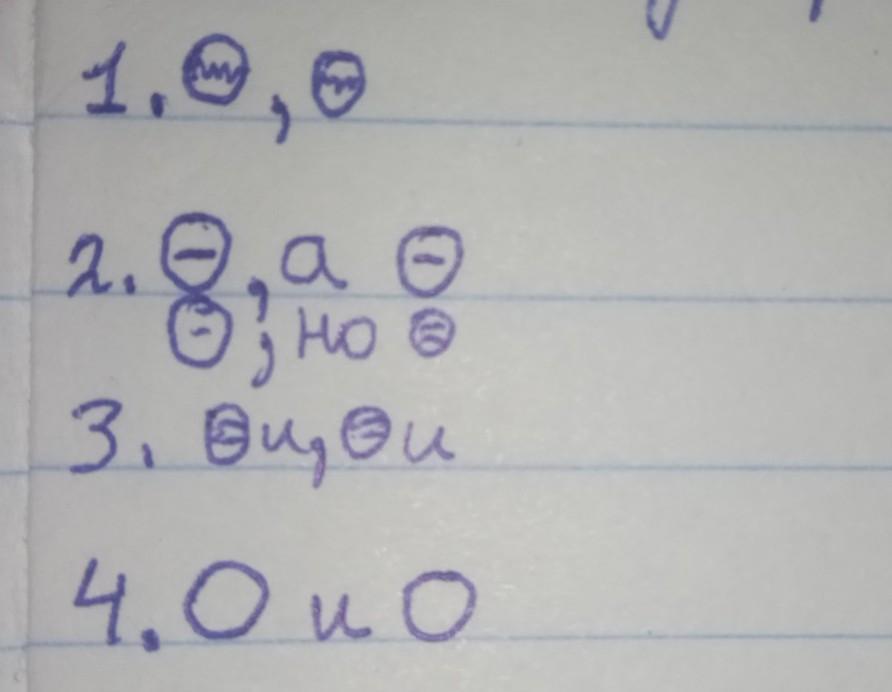 1. ⊖, ⊖
2. ⊖, а ⊖
⊖, но ⊖
3. ⊖ и, ⊖ и
4. O и O